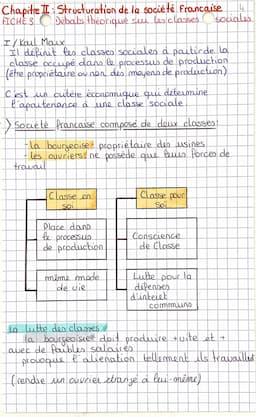 Chapitre II : Structuration de la société Française
FICHE 3 Débats théorique sur les classes sociales
I / Karl Marx
Il définit les classes sociales à partir de la
classe occupé dans le processus de production
(être propriétaire ou non des moyens de production)
C'est un critère économique qui détermine
l'apartenance à une classe sociale.
> Société française composé de deux classes:
- la bourgeoisie: propriétaire des usines
- les ouvriers: ne possède que leurs forces de
travail
Classe en
soi
Classe pour
Soi
Place dans
le processus
de production
Conscience
de Classe
même mode
de vie
Lutte pour la
défenses
d'interêt
communs
la lutte des classes:
la bourgeoisie doit produire + vite et +
avec de faibles salaires
provoque l'aliénation tellement ils travaillent
(rendre un ouvrier étrangé à lui-même)